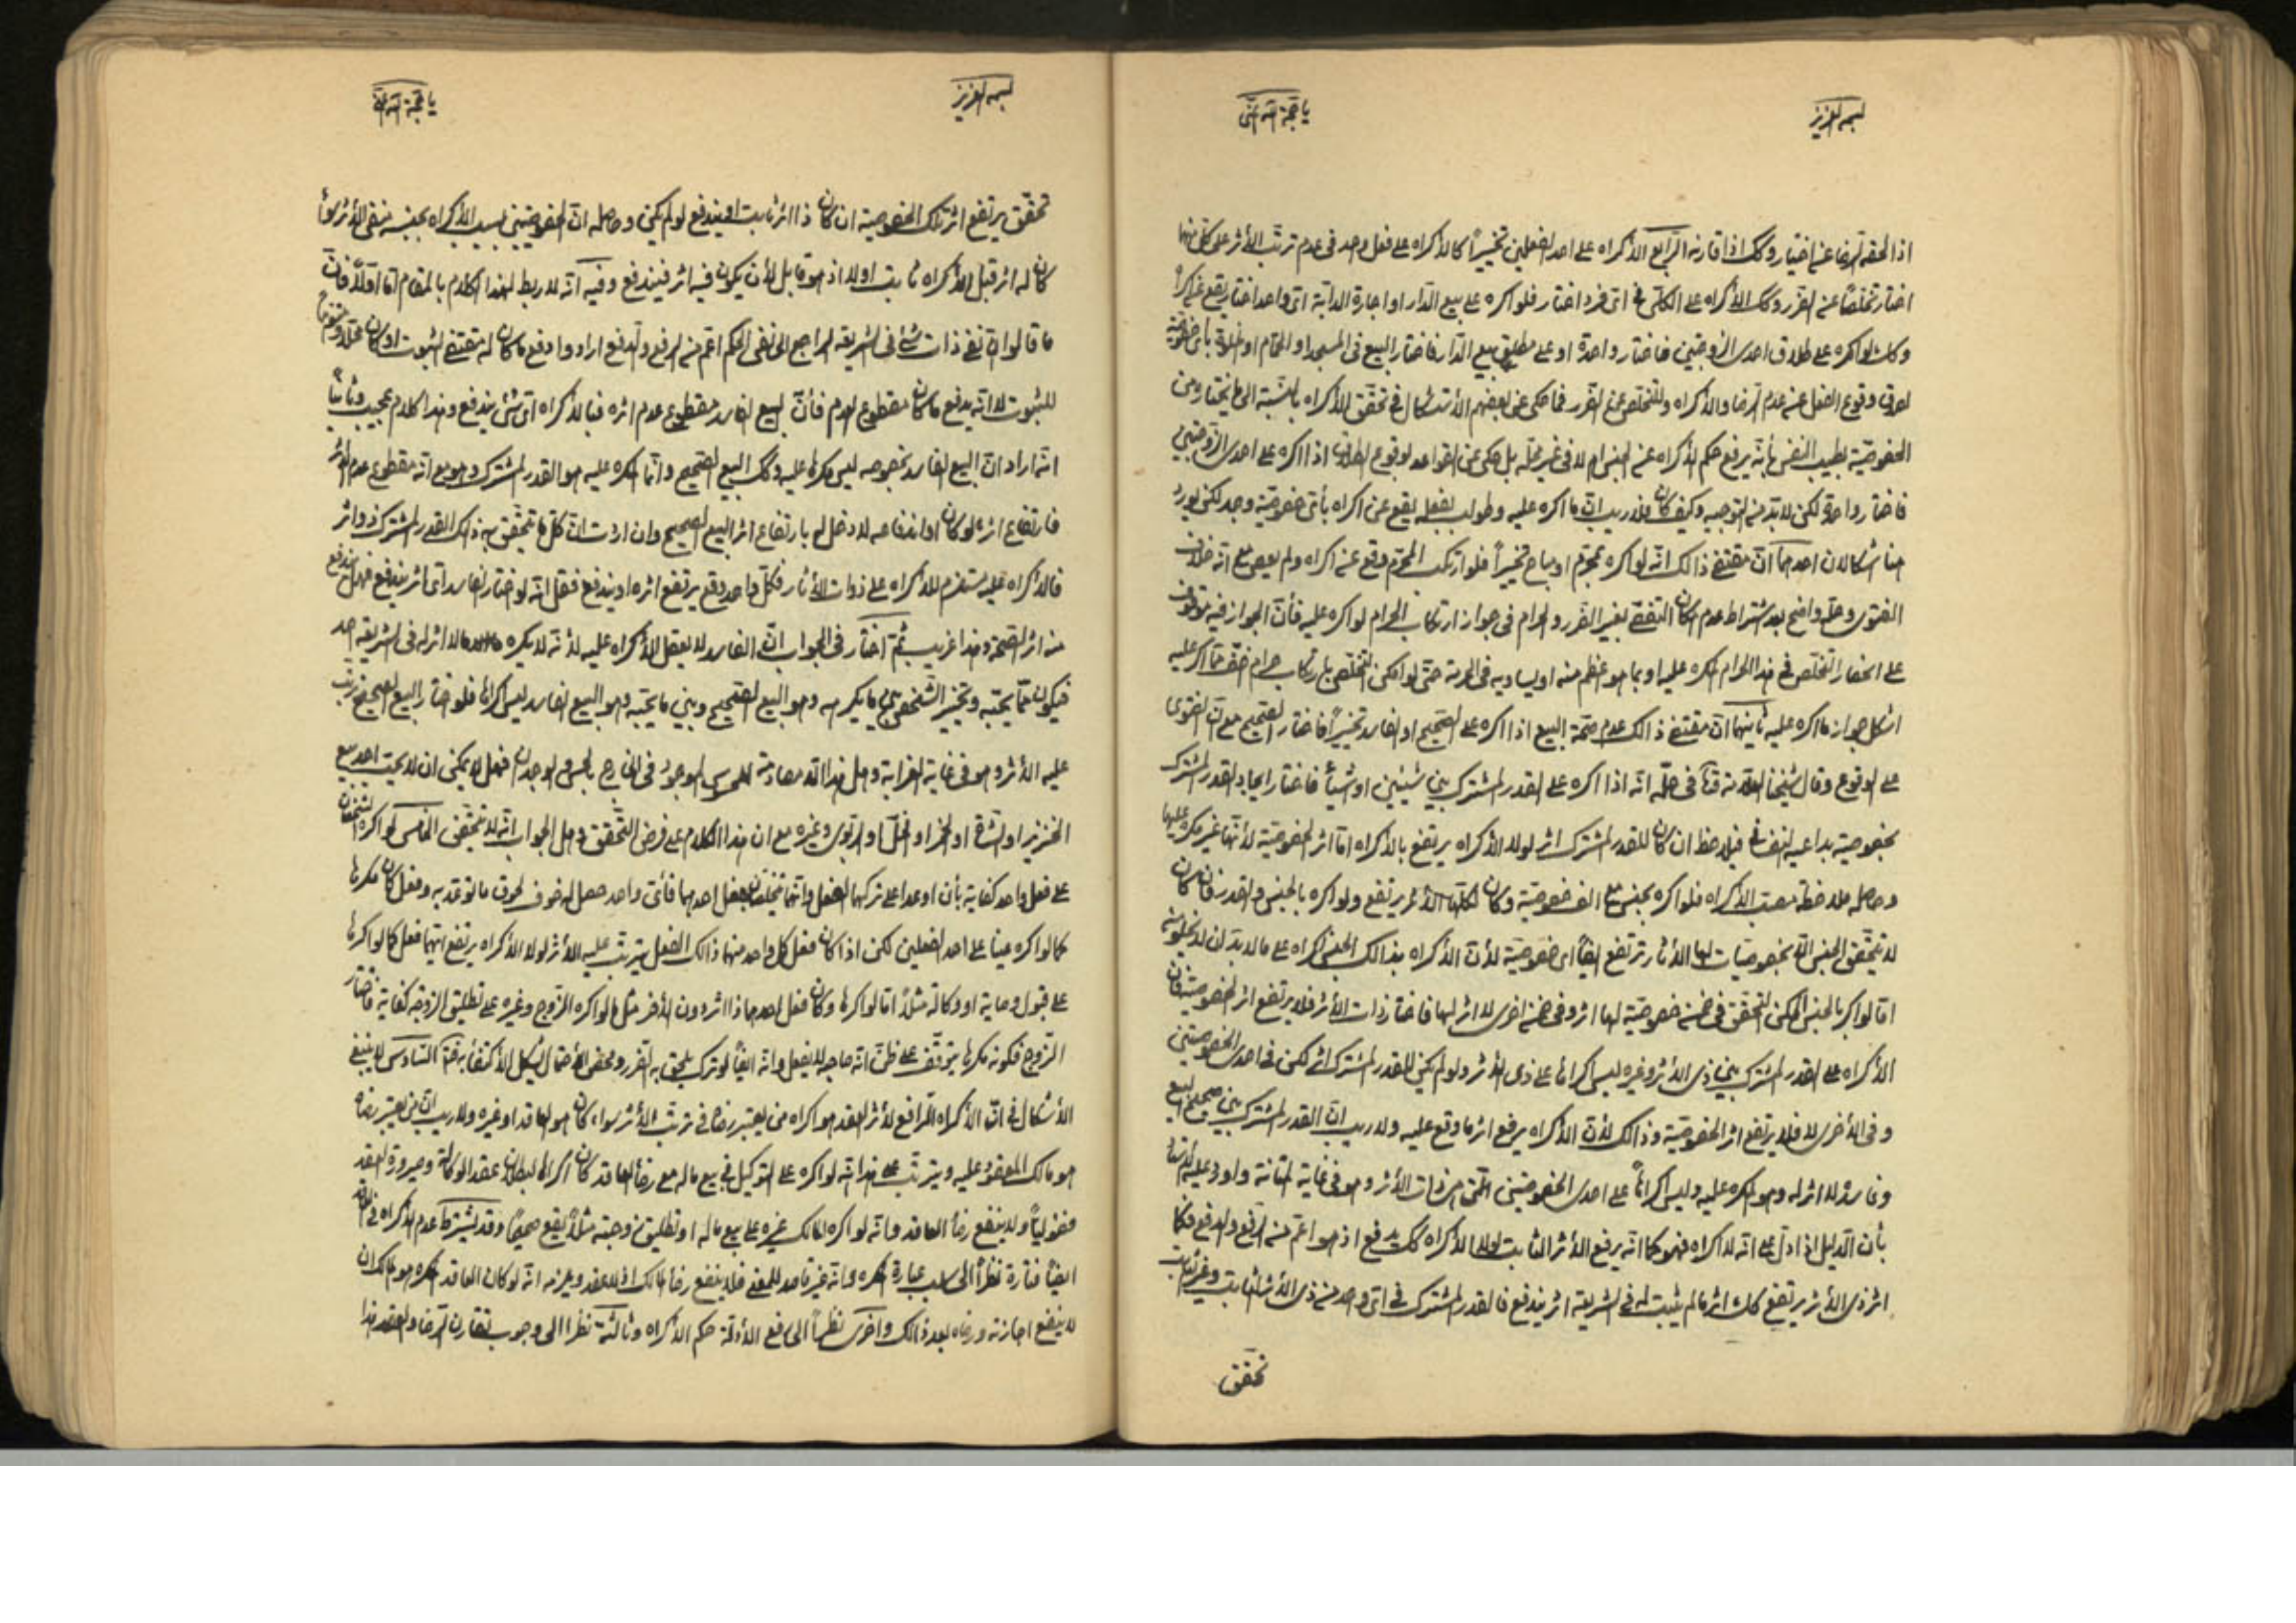 بسمه العزيز
يا حجة الله اغثني
اذا لحقه الرضا عن اختيار وكك اذا قارنه الرابع الاكراه على احد الفعلين تخييراً كالاكراه على فعل واحد فى عدم ترتب الأثر على كل منهما
اختار تخلصاً عن الضرر وكك الاكراه على الكلى فى اى فرد اختار فلو اكره على بيع الدار او اجارة الدابة اى واحد اختار يقع عن اكراه
وكك لو اكره على طلاق احدى الزوجتين فاختار واحدة او على مطلق بيع الدار فاختار البيع فى المسجد او الحمام او الخلوة بأى خصوصية
لصدق وقوع الفعل عن عدم الرضا والاكراه وللتخلص عن الضرر فما حكى عن بعضهم الأستشكال فى تحقق الاكراه بالنسبة الى ما يختاره من
الخصوصية بطيب النفس بأنه يرفع حكم الاكراه عن الجنس ام لا فى غير محله بل حكى عن القواعد لوقوع الطلاق اذا اكره على احدى الزوجتين
فاختار واحدة لكن لابد من التوجيه وكيف كان فلا ريب ان ما اكره عليه وطولب بفعله يقع عن اكراه بأى خصوصية وجد لكن يورد
هنا اشكالان احدهما ان مقتضى ذالك انه لو اكره بمحرم او مباح تخييراً فلو ارتكب المحرم وقع عن اكراه ولم يعص مع انه خلاف
الفتوى وحله واضح بعد اشتراط عدم امكان التفصى بغير الضرر والحرام فى جواز ارتكاب الحرام لو اكره عليه فأن الجواز فيه موقوف
على انحصار التخلص فى هذا الحرام المكره عليه او بما هو اعظم منه او يساويه فى الحرمة حتى لو امكن التخلص بارتكاب حرام اخف مما اكره عليه
اشكل جواز ما اكره عليه ثانيهما ان مقتضى ذالك عدم صحة البيع اذا اكره على الصحيح او الفاسد تخييراً فاختار الصحيح مع ان الفتوى
على الوقوع وقال شيخنا العلامة قده فى حله انه اذا اكره على القدر المشترك بين شيئين او اشياء فاختار ايجاد القدر المشترك
بخصوصية بداعيه النفسانى فيلاحظ ان كان للقدر المشترك اثر لولا الاكراه يرتفع بالاكراه اما اثر الخصوصية لأنها غير مكره عليها
وحاصله ملاحظة مصب الاكراه فلو اكره بجنس مع الف خصوصية وكان لكلها الأثر يرتفع ولو اكره بالجنس والقدر فان كان
لا يتحقق الجنس الا بخصوصيات لها الأثار ترتفع ايضاً اى خصوصية لأن الاكراه بذالك الجنس اكراه على ما لابد ان لا يخلو منه
اما لو اكره بالجنس الممكن التحقق فى ضمن خصوصية لها اثر وفى ضمن اخرى لا اثر لها فاختار ذات الأثر فلا يرتفع اثر الخصوصية فان
الاكراه على القدر المشترك بين ذى الأثر وغيره ليس اكراها على ذى الأثر ولو لم يكن للقدر المشترك اثر لكن فى احدى الخصوصيتين
وفى الأخرى لا فلا يرتفع اثر الخصوصية وذالك لأن الاكراه يرفع اثر ما وقع عليه ولا ريب ان القدر المشترك بين صحيح البيع
وفاسده لا اثر له وهو المكره عليه وليس اكراهاً على احدى الخصوصيتين التى هى ذات الأثر وهو فى غاية المتانة واورد عليه الأستاد
بأن الدليل اذا دل على انه لا اكراه فهو كما انه يرفع الأثر الثابت لولا الاكراه كك يدفع اذ هو اعم من الرفع والدفع فكما
اثر ذى الأثر يرتفع كك اثر مالم يثبت له فى الشريعة اثر يندفع فالقدر المشترك فى اى واحد من ذى الأثر الثابت وغير ثابت
تحقق
بسمه العزيز
يا حجة الله اغثنى
تحقق يرتفع اثر تلك الخصوصية ان كان ذا اثر ثابت او يندفع لو لم يكن وحاصله ان الخصوصيتين بسبب الاكراه بجنسه منفى الأثر سواء
كان له اثر قبل الاكراه ثابت اولا اذ هو قابل لأن يكون فيه اثر فيندفع وفيه انه لا ربط لهذا الكلام بالمقام اما اولاً فان
ما قالوا ان نفى ذات شئ فى الشريعة الراجع الى نفى الحكم اعم من الرفع والدفع ارادوا دفع ما كان له مقتضى الثبوت او كان محلاً
للثبوت لا انه يدفع ما كان مقطوع العدم فأن البيع الفاسد مقطوع عدم اثره فبالاكراه اى شئ يندفع وهذا كلام عجيب وثانياً
انه اراد ان البيع الفاسد بخصوصه ليس مكرها عليه وكك البيع الصحيح وانما المكره عليه هو القدر المشترك وهو مع انه مقطوع عدم اثر
فارتفاع اثره لو كان او اندفاعه لا دخل له بارتفاع اثر البيع الصحيح وان اردت ان كل ما يتحقق به ذالك القدر المشترك ذو اثر
فالاكراه عليه مستلزم للاكراه على ذوات الأثار فكل واحد وقع يرتفع اثره او يندفع فقل انه لو اختار الفاسد اى اثر يندفع فهل يندفع
منه اثر الصحة وهذا غريب ثم اختار فى الجواب ان الفاسد لا يعقل الاكراه عليه لأنه لا يكره مالا اثر له فى الشريعة احد
فيكون مما يحبه وتخيير الشخص بين ما يكرهه وهو البيع الصحيح وبين ما يحبه وهو البيع الفاسد ليس اكراها فلو اختار البيع الصحيح يترتب
عليه الأثر وهو فى غاية الغرابة وهل هذا الا مصادمة للمحسوس الموجود فى الخارج بالحس والوجدان فهل لا يمكن ان لا يحب احد بيع
الخنزير او الشاة او الخمر او الخل او الربوى وغيره مع ان هذا الكلام على فرض التحقق وهل الجواب انه لا يتحقق الخامس لو اكره الشخصان
على فعل واحد كفاية بأن اوعدا على تركهما الفعل وانهما يتخلصان بفعل احدهما فأى واحد حصل له خوف لحوق ما توعد به وفعل كان مكرها
كما لو اكره عينا على احد الفعلين لكن اذا كان فعل كل واحد منهما ذالك الفعل يترتب عليه الأثر لولا الاكراه يرتفع ايهما فعل كما لو اكرها
على قبول وصاية او وكالة مثلاً اما لو اكرها وكان فعل احدهما ذا اثر دون الأخر مثل ما لو اكره الزوج وغيره على تطليق الزوجة كفاية فاختار
الزوج فكونه مكرها يتوقف على ظن انه صاحبه لا يفعل وانه ايضاً لو ترك يلحق به الضرر ومحض الأحتمال يشكل الاكتفاء به السادس لا ينبغى
الأشكال فى ان الاكراه الرافع لأثر العقد هو اكراه من يعتبر رضاه فى ترتب الأثر سواء كان هو العاقد او غيره ولا ريب ان من يعتبر رضاه
هو مالك المعقود عليه ويترتب على هذا انه لو اكره على التوكيل فى بيع ماله مع رضاء العاقد كان اكراها لبطلان عقد الوكالة وصيرورة العقد
فضولياً ولا ينفع رضاء العاقد وانه لو اكره المالك غيره على بيع ماله او تطليق زوجته مثلاً يقع صحيحاً وقد يشترط عدم الاكراه فى العاقد
ايضاً فتارة نظراً الى سلب عبارة المكره وانه غير قاصد للمعنى فلا ينفع رضاء المالك اذ لا عقد ويلزمه انه لو كان العاقد المكره هو المالك ان
لا ينفع اجازته ورضاه بعد ذالك واخرى نظراً الى رفع الأدلة حكم الاكراه وثالثة نظرا الى وجوب تقارن الرضا والعقد هذا